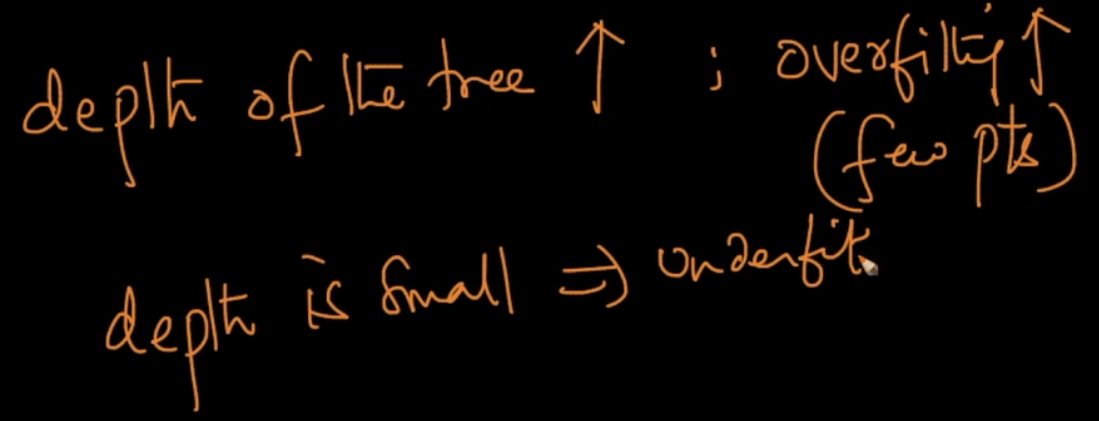 depth of the tree ↑ ; overfitting ↑
(few pts)
depth is small ⇒ underfit